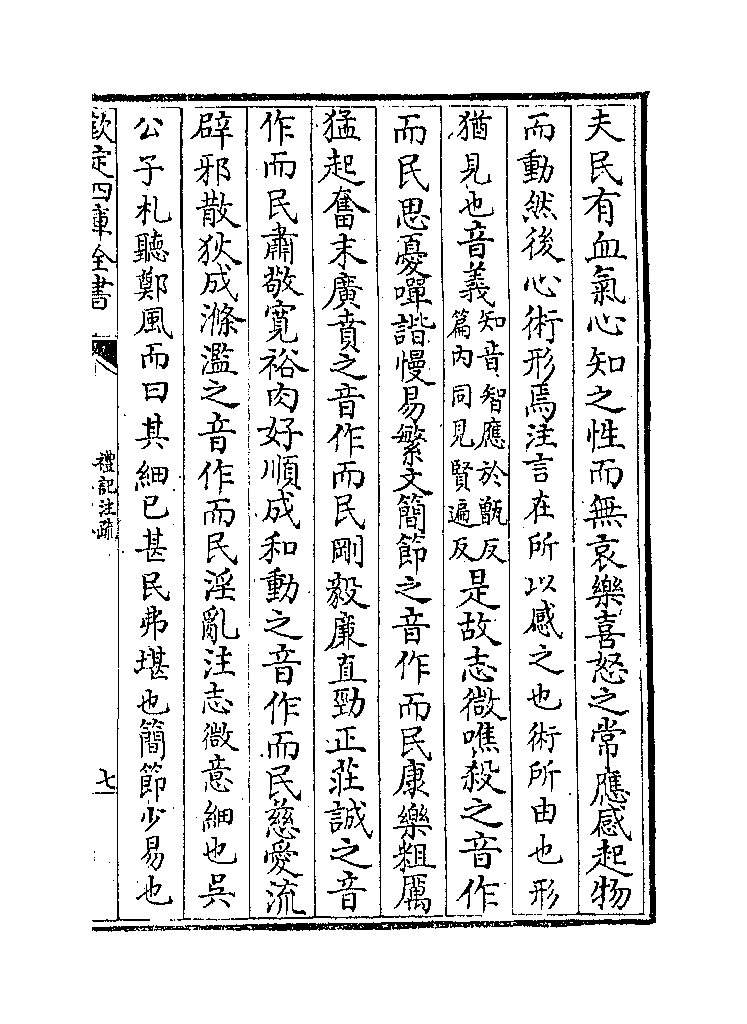 夫民有血氣心知之性而無哀樂喜怒之常應感起物
而動然後心術形焉注言在所以感之也術所由也形
猶見也音義知音智應於甑反
篇内同見賢遍反是故志微噍殺之音作
而民思憂嘽諧慢易繁文簡節之音作而民康樂粗厲
猛起奮末廣賁之音作而民剛毅廉直勁正莊誠之音
作而民肅敬寛裕肉好順成和動之音作而民慈愛流
辟邪散狄成滌濫之音作而民淫亂注志微意細也吳
公子札聽鄭風而曰其細已甚民弗堪也簡節少易也
欽定四庫全書
禮記注疏
七